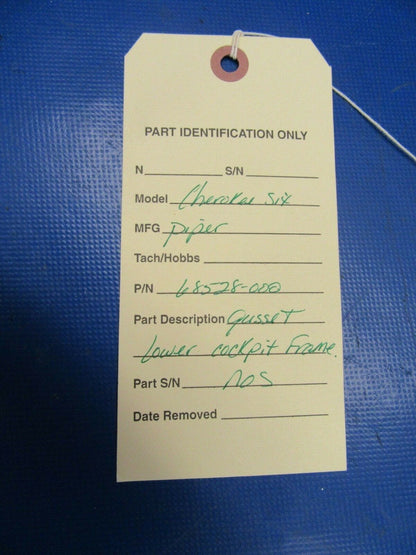 PART IDENTIFICATION ONLY
N S/N
Model Cherokee Six
MFG piper
Tach/Hobbs
P/N 68528-000
Part Description Gusset
Lower cockpit Frame.
Part S/N NOS
Date Removed